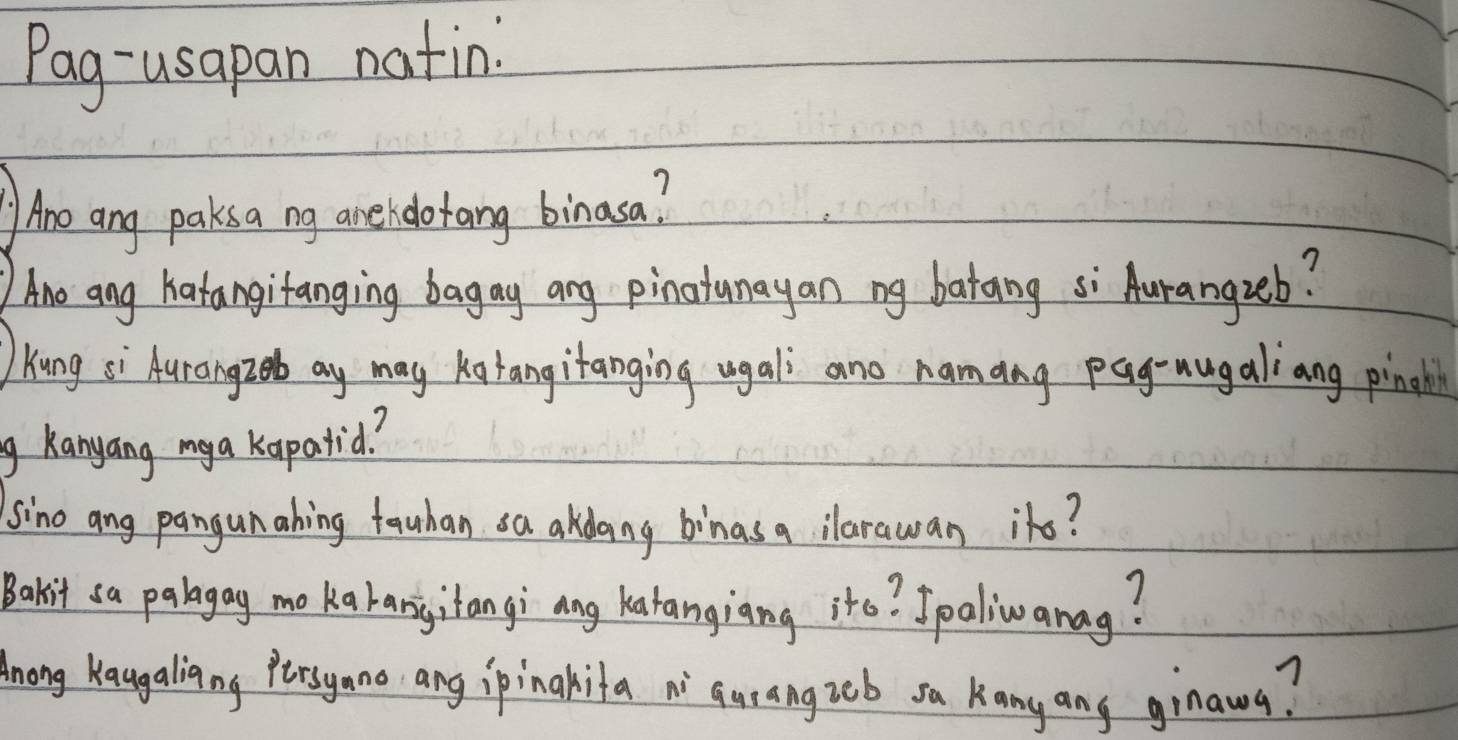 Pag-usapan natin:
1.) Ano ang paksa ng anekdotang binasa?
) Ano ang katangitanging bagay ang pinatunayan ng batang si Aurangzeb?
) Kung si Aurangzeb ay may katangitanging ugali ano namang pag-uugali ang
g kanyang mga kapatid?
) Sino ang pangunahing tauhan sa akdang binasa ilarawan ito?
Bakit sa palagay mo katangitangi ang katangiang ito? Ipaliwanag?
Anong kaugaliang Persyano ang ipinakita ni aurangzeb sa kanyang ginawa?